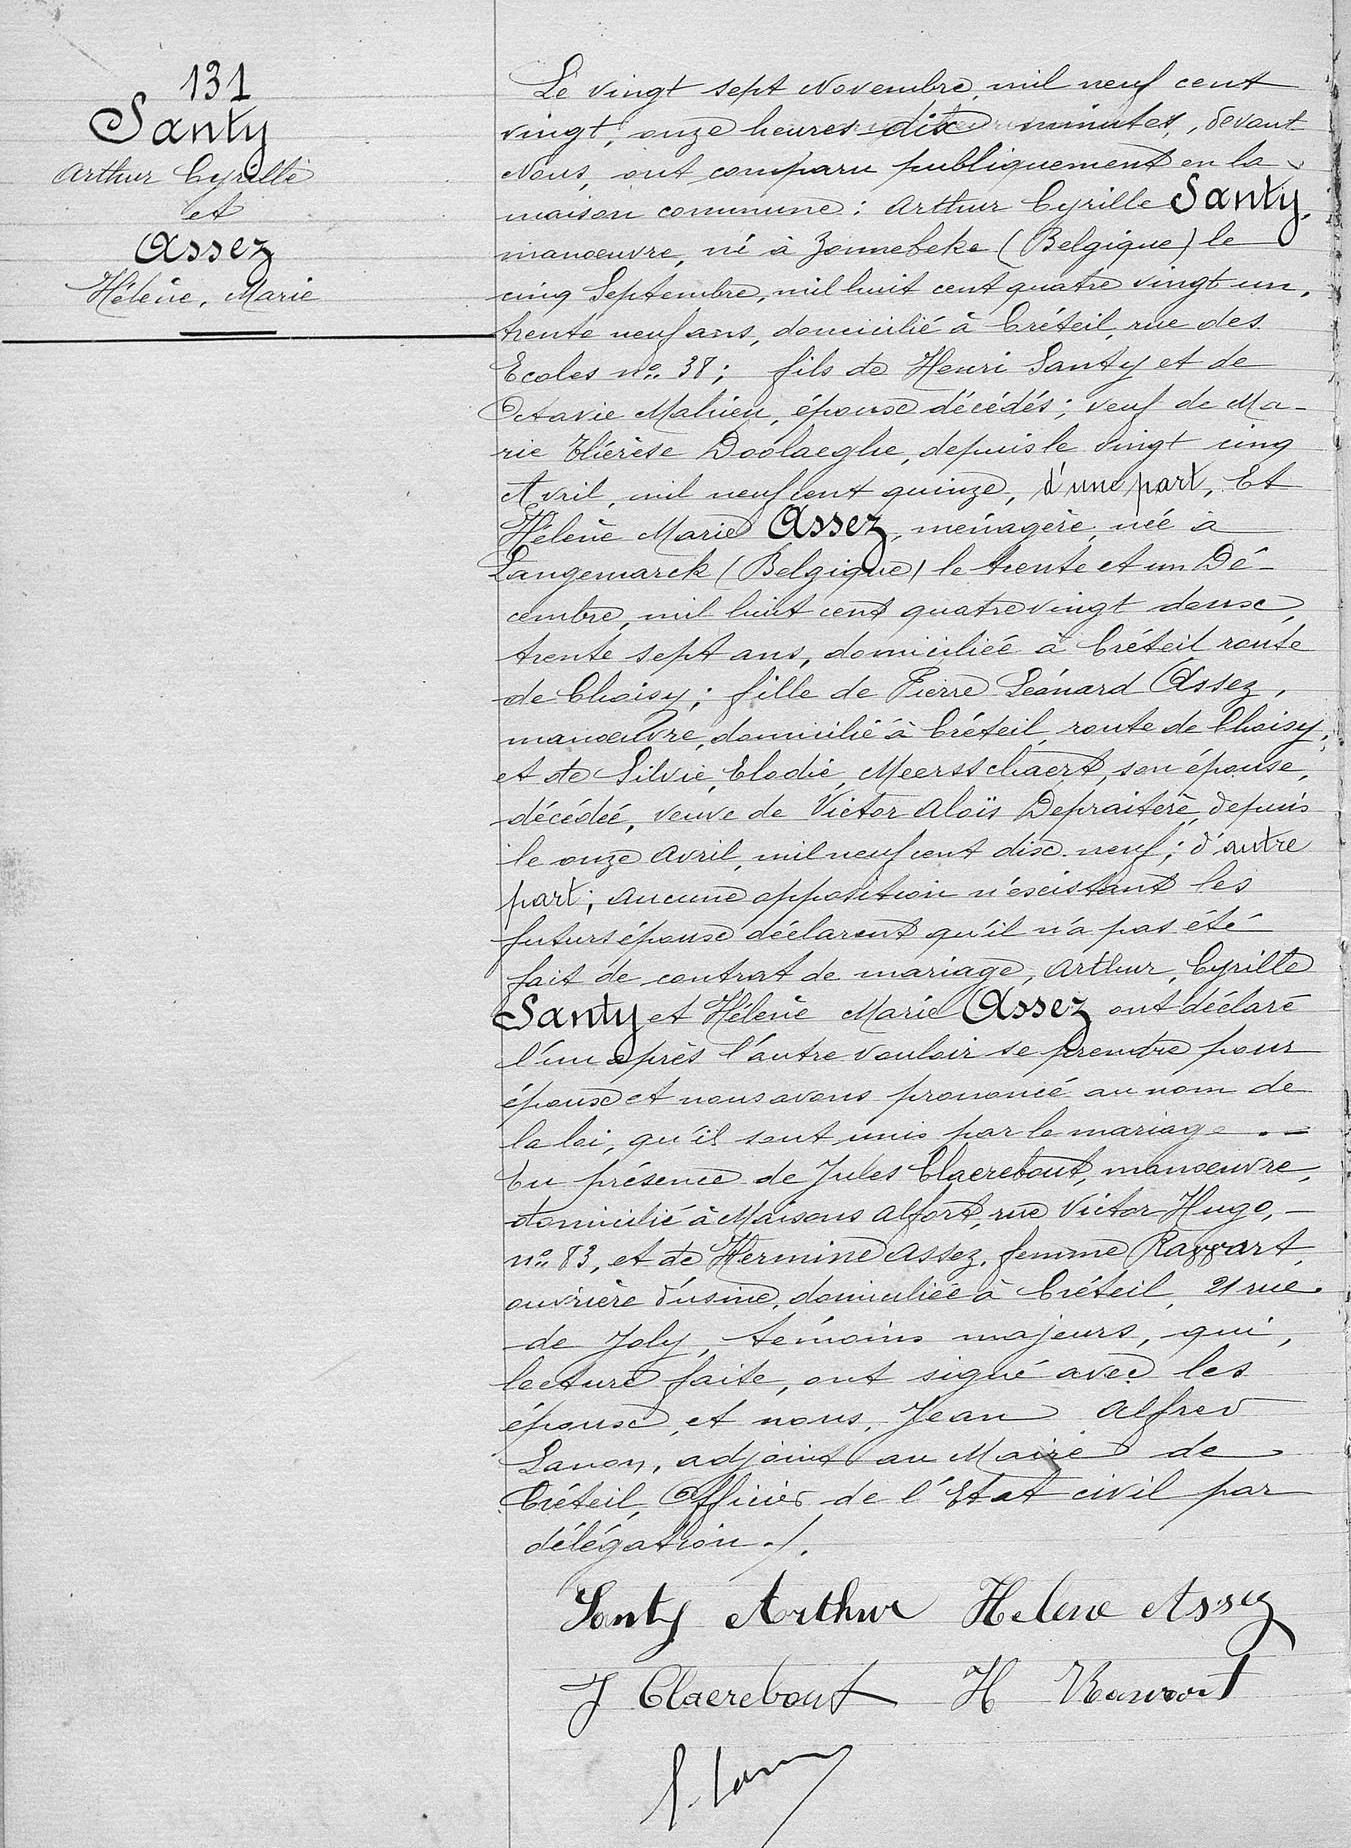 131
Santy
Arthur Cyrille
et
Assez
Hélène, Marie
Le vingt sept Novembre, mil neuf cent
vingt, onze heures dix minutes, devant
Nous, ont comparu publiquement en la
maison commune : Arthur Cyrille Santy,
manœuvre, né à Zonnebeke (Belgique) le
cinq Septembre, mil huit cent quatre vingt un,
trente neuf ans, domicilié à Créteil, rue des
Ecoles no 38 ; fils de Henri Santy et de
Octavie Mahieu, époux décédés ; veuf de Ma-
rie Thérèse Doolaeghe, depuis le vingt cinq
Avril, mil neuf cent quinze, d'une part, Et
Hélène Marie Assez, ménagère, née à
Langemarck (Belgique) le trente et un Dé-
cembre, mil huit cent quatre vingt deux,
trente sept ans, domiciliée à Créteil route
de Choisy ; fille de Pierre Léonard Assez,
manœuvre, domicilié à Créteil, route de Choisy ;
et de Silvie, Elodie, Meersschaert, son épouse,
décédée, veuve de Victor Aloïs Depraitere, depuis
le onze Avril, mil neuf cent dix neuf ; d'autre
part ; aucune opposition n'existant les
futurs époux déclarent qu'il n'a pas été
fait de contrat de mariage, Arthur, Cyrille
Santy et Hélène Marie Assez ont déclaré
l'un après l'autre vouloir se prendre pour
époux et nous avons prononcé au nom de
la loi, qu'il sont unis par le mariage. —
En présence de Jules Claerebout, manœuvre,
domicilié à Maisons Alfort, rue Victor Hugo, —
no 83, et de Hermine Assez, femme
ouvrière d'usine, domiciliée à Créteil, 21 rue
de Joly, témoins majeurs, qui,
lecture faite, ont signé avec les
époux, et nous, Jean Alfred
adjoint au Maire de
Créteil, Officier de l'Etat civil par
délégation ./.
Santy Arthur Helene Assez
J Claerebout H